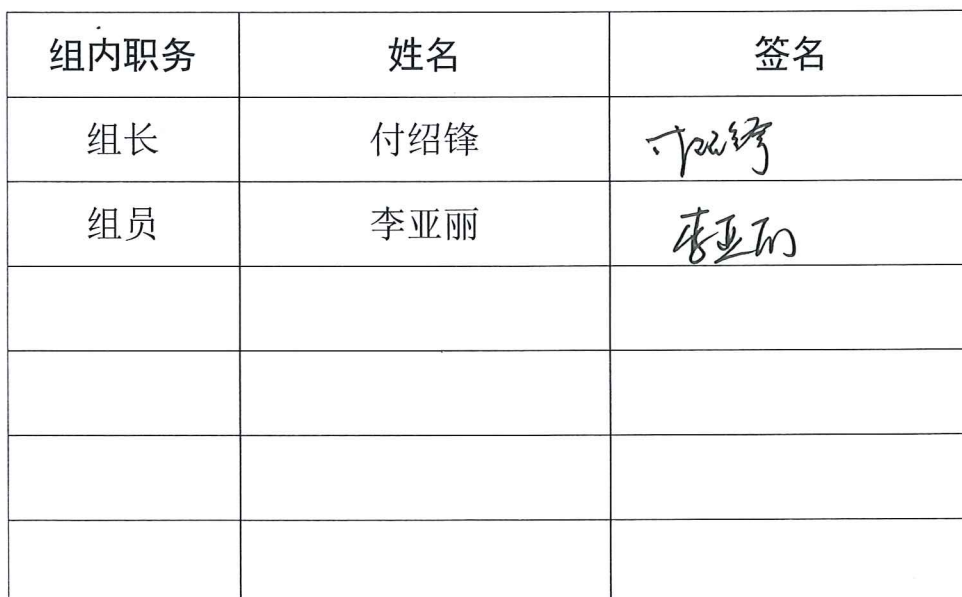 组内职务 姓名 签名
组长 付绍锋 付绍锋
组员 李亚丽 李亚丽